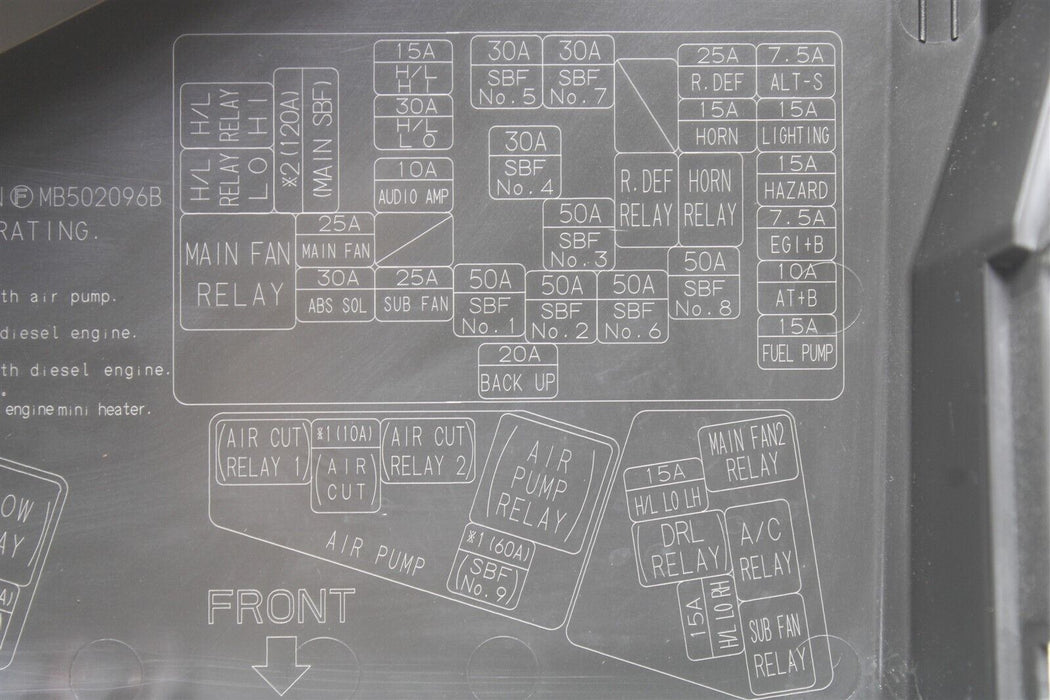 15A
H/L
HI
30A
H/L
LO
10A
AUDIO AMP
H/L
RELAY
HI
H/L
RELAY
LO
※2(120A)
(MAIN SBF)
30A
SBF
No.5
30A
SBF
No.7
30A
SBF
No.4
25A
R.DEF
7.5A
ALT-S
15A
HORN
15A
LIGHTING
R.DEF
RELAY
HORN
RELAY
15A
HAZARD
7.5A
EGI+B
10A
AT+B
15A
FUEL PUMP
MAIN FAN
RELAY
25A
MAIN FAN
30A
ABS SOL
25A
SUB FAN
50A
SBF
No.3
50A
SBF
No.1
50A
SBF
No.2
50A
SBF
No.6
50A
SBF
No.8
20A
BACK UP
Ⓕ MB502096B
RATING.
th air pump.
diesel engine.
th diesel engine.
engine mini heater.
(AIR CUT
RELAY 1)
※1(10A)
(AIR
CUT)
(AIR CUT
RELAY 2)
(AIR
PUMP
RELAY)
※1(60A)
(SBF
No.9)
AIR PUMP
MAIN FAN2
RELAY
15A
H/L LO LH
(DRL
RELAY)
A/C
RELAY
15A
H/L LO RH
SUB FAN
RELAY
OW
AY)
A)
FRONT